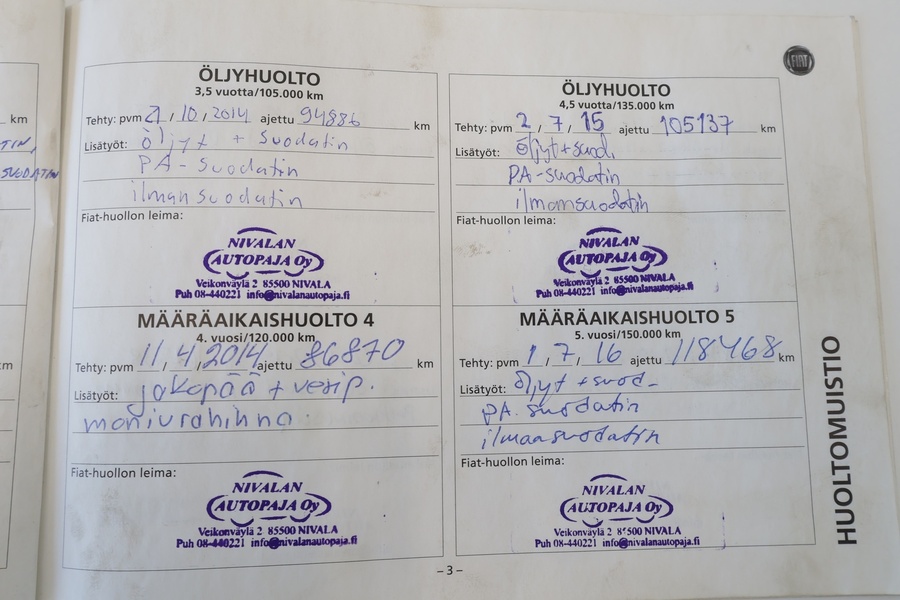 km
TIN,
SUODATIN
km
FIAT
ÖLJYHUOLTO
3,5 vuotta/105.000 km
Tehty: pvm 21 / 10 / 2014 ajettu 94886 km
Lisätyöt: öljyt + suodatin
PA-suodatin
ilman suodatin
Fiat-huollon leima:
NIVALAN
AUTOPAJA Oy
Veikonväylä 2 85500 NIVALA
Puh 08-440221 info@nivalanautopaja.fi
MÄÄRÄAIKAISHUOLTO 4
4. vuosi/120.000 km
Tehty: pvm 11 / 4 / 2014 ajettu 86870 km
Lisätyöt: jakopää + vesip.
moniurahihna
Fiat-huollon leima:
NIVALAN
AUTOPAJA Oy
Veikonväylä 2 85500 NIVALA
Puh 08-440221 info@nivalanautopaja.fi
ÖLJYHUOLTO
4,5 vuotta/135.000 km
Tehty: pvm 2 / 7 / 15 ajettu 105137 km
Lisätyöt: öljyt+suod.
PA-suodatin
ilmansuodatin
Fiat-huollon leima:
NIVALAN
AUTOPAJA Oy
Veikonväylä 2 85500 NIVALA
Puh 08-440221 info@nivalanautopaja.fi
MÄÄRÄAIKAISHUOLTO 5
5. vuosi/150.000 km
Tehty: pvm 1 / 7 / 16 ajettu 118468 km
Lisätyöt: öljyt +suod-
PA. suodatin
ilmaasuodatin
Fiat-huollon leima:
NIVALAN
AUTOPAJA Oy
Veikonväylä 2 85500 NIVALA
Puh 08-440221 info@nivalanautopaja.fi
HUOLTOMUISTIO
– 3 –